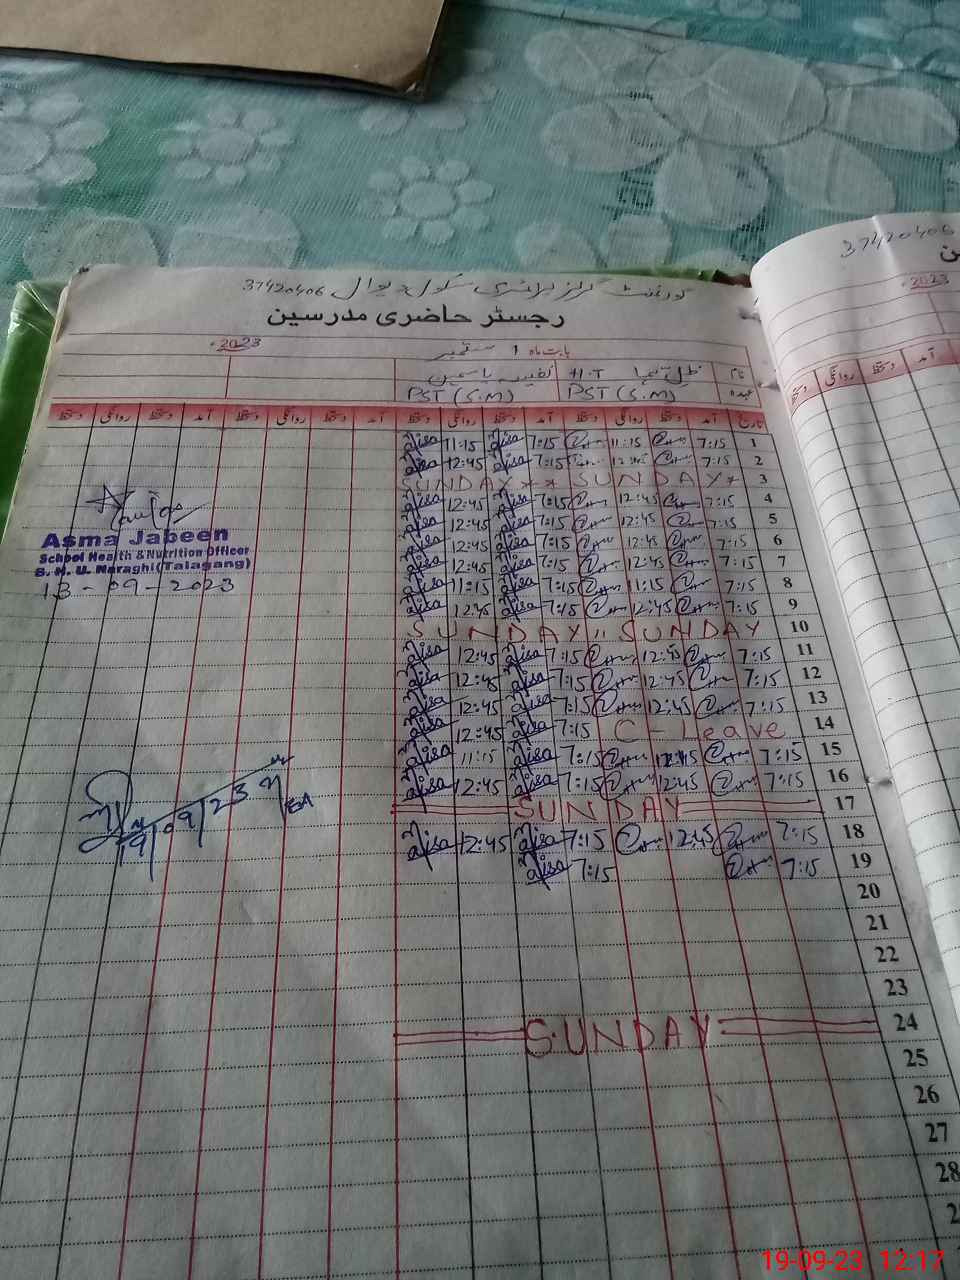 گورنمنٹ گرلز پرائمری سکول دیوال 37420406
37420406
رجسٹر حاضری مدرسین
ین
بابت ماہ 1 ستمبر 2023ء
2023ء
نام H.T یاسمین
عہدہ PST (S.M) PST (S.M)
تاریخ آمد دستخط روانگی دستخط آمد دستخط روانگی دستخط آمد دستخط روانگی دستخط آمد دستخط روانگی دستخط
آمد دستخط روانگی دستخط
1 7:15 11:15 7:15 11:15
2 7:15 12:45 7:15 12:45
3 SUNDAY ** SUNDAY *
4 7:15 12:45 7:15 12:45
5 7:15 12:45 7:15 12:45
6 7:15 12:45 7:15 12:45
7 7:15 12:45 7:15 12:45
8 7:15 11:15 7:15 11:15
9 7:15 12:45 7:15 12:45
10 SUNDAY " SUNDAY
11 7:15 12:45 7:15 12:45
12 7:15 12:45 7:15 12:45
13 7:15 12:45 7:15 12:45
14 C - Leave 7:15 12:45
15 7:15 7:15 11:15
16 7:15 12:45 7:15 12:45
17 SUNDAY
18 7:15 12:45 7:15 12:45
19 7:15 7:15
20
21
22
23
24 SUNDAY
25
26
27
28
Asma Jabeen
School Health & Nutrition Officer
B. H. U. Naraghi (Talagang)
13-09-2023
19/09/23
19-09-23 12:17